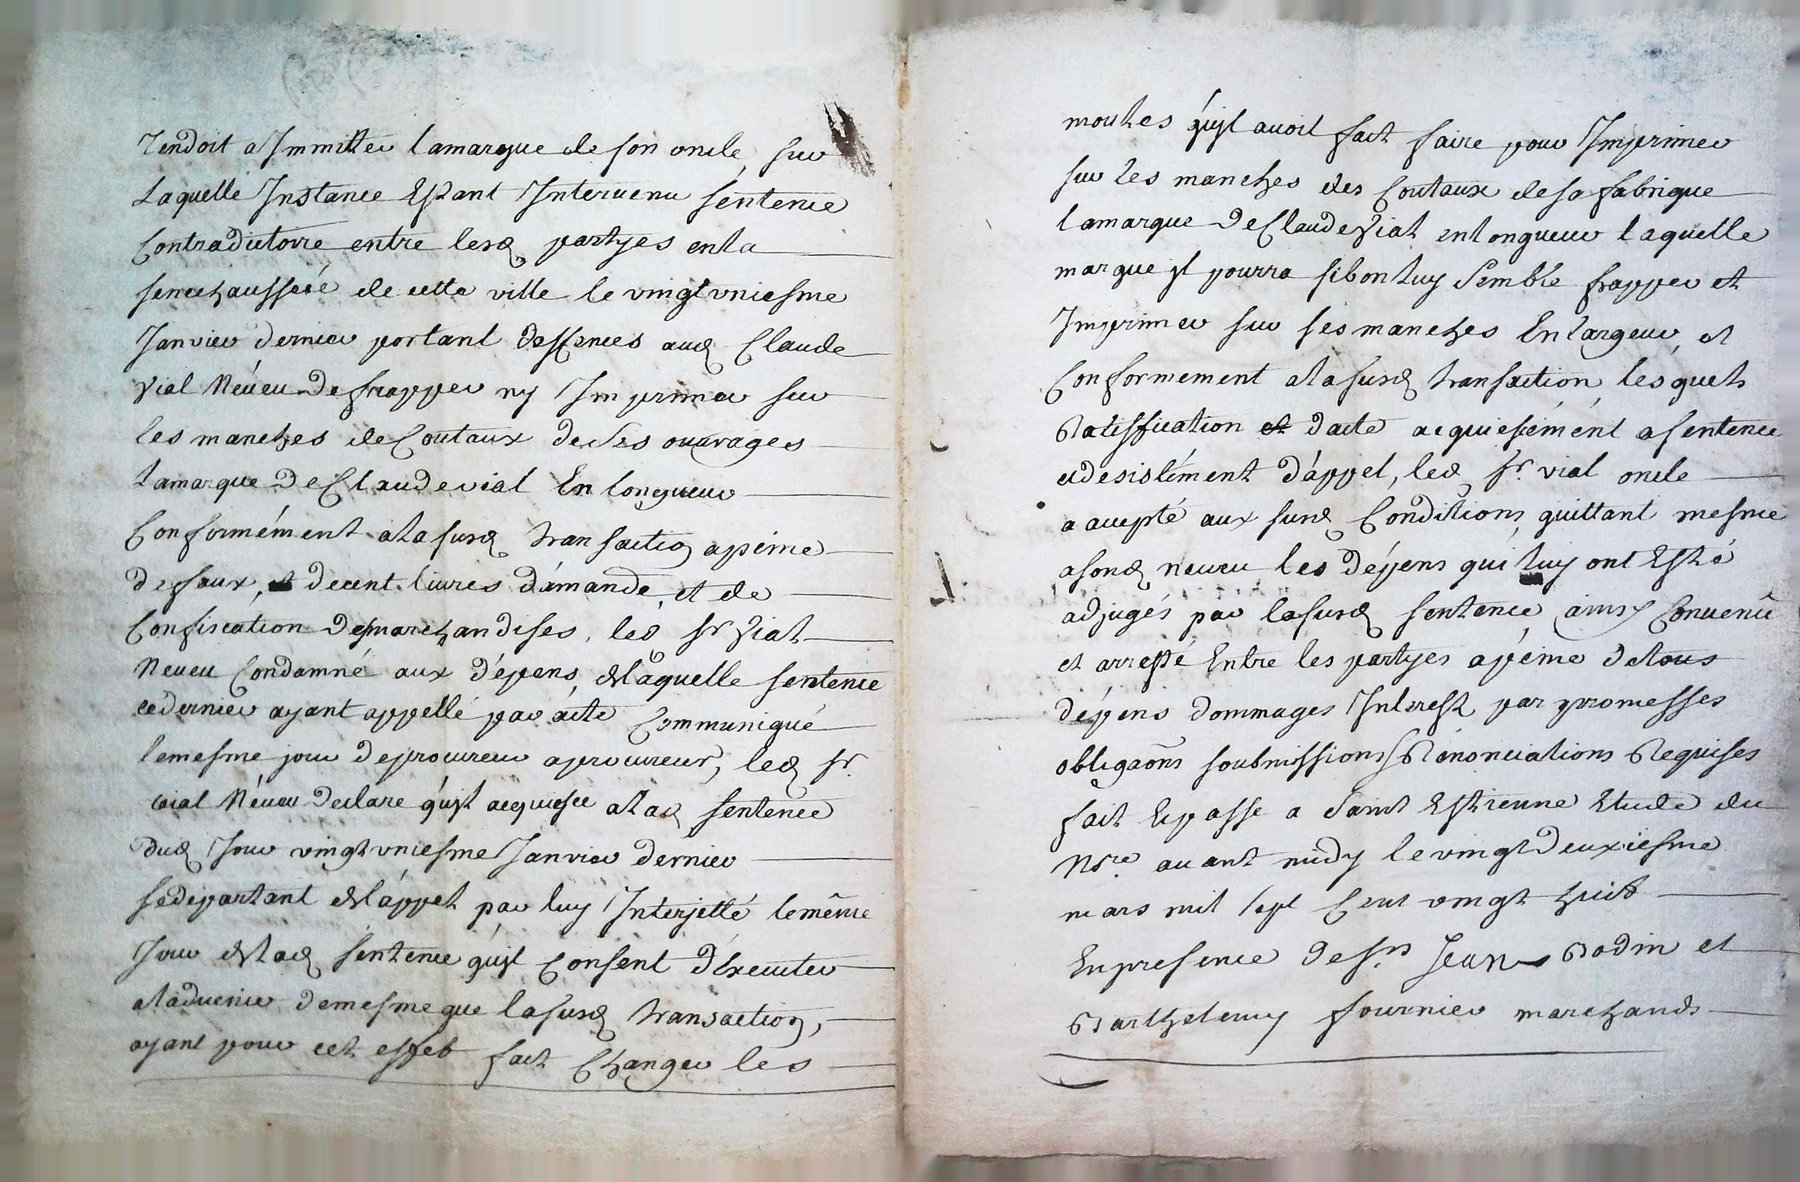 Tendoit a Immitter lamarque de son oncle, sur
Laquelle Instance Estant Intervenu sentence
Contradictoire entre lesd partyes en la
senechaussée de cette ville le vingt uniesme
Janvier dernier portant deffences aud Claude
Vial Néveu De frapper ny Imprimer sur
les manches de Coutaux de ses ouvrages
Lamarque De Claude vial En longueur
Conformément a la susd transaction apeine
de faux, et de cent livres d'amande, et de
Confiscation Des marchandises, led sr Vial
Neveu Condamné aux dépens, de laquelle sentence
ce dernier ayant appellé par acte Communiqué
le mesme jour de procureur a procureur, led sr
vial Néveu declare qu'jl acquiesce a lad sentence
dud Jour vingt uniesme Janvier dernier
se départant de l'appel par luy Interjetté le même
Jour de lad sentence qu'jl consent d'Executer
a ladvenir de mesme que la susd transaction,
ayant pour cet effet fait Changer les
moules qu'jl avoit fait faire pour Imprimer
sur les manches des Coutaux de sa fabrique
lamarque De Claude Vial en longueur laquelle
marque jl pourra si bon luy semble frapper et
Imprimer sur ses manches En largeur, et
Conformement a la susd transaction, lesquels
Ratiffication et d'acte acquiesément a sentence
et desistément d'appel, led sr vial oncle
a accepté aux susd Conditions, quittant mesme
a sond neveu les dépens qui luy ont Esté
adjugés par la susd sentence, ainsy Convenu
et arresté Entre les partyes a péine de tous
dépens dommages Interest par promesses
obligaons soubmissions Rénonciations Requises
fait Et passé a Saint Estienne Etude du
Nore avant midy le vingt Deuxiesme
mars mil sept Cent vingt huit
En presence de srs Jean Bodin et
Barthelemy fournier marchands